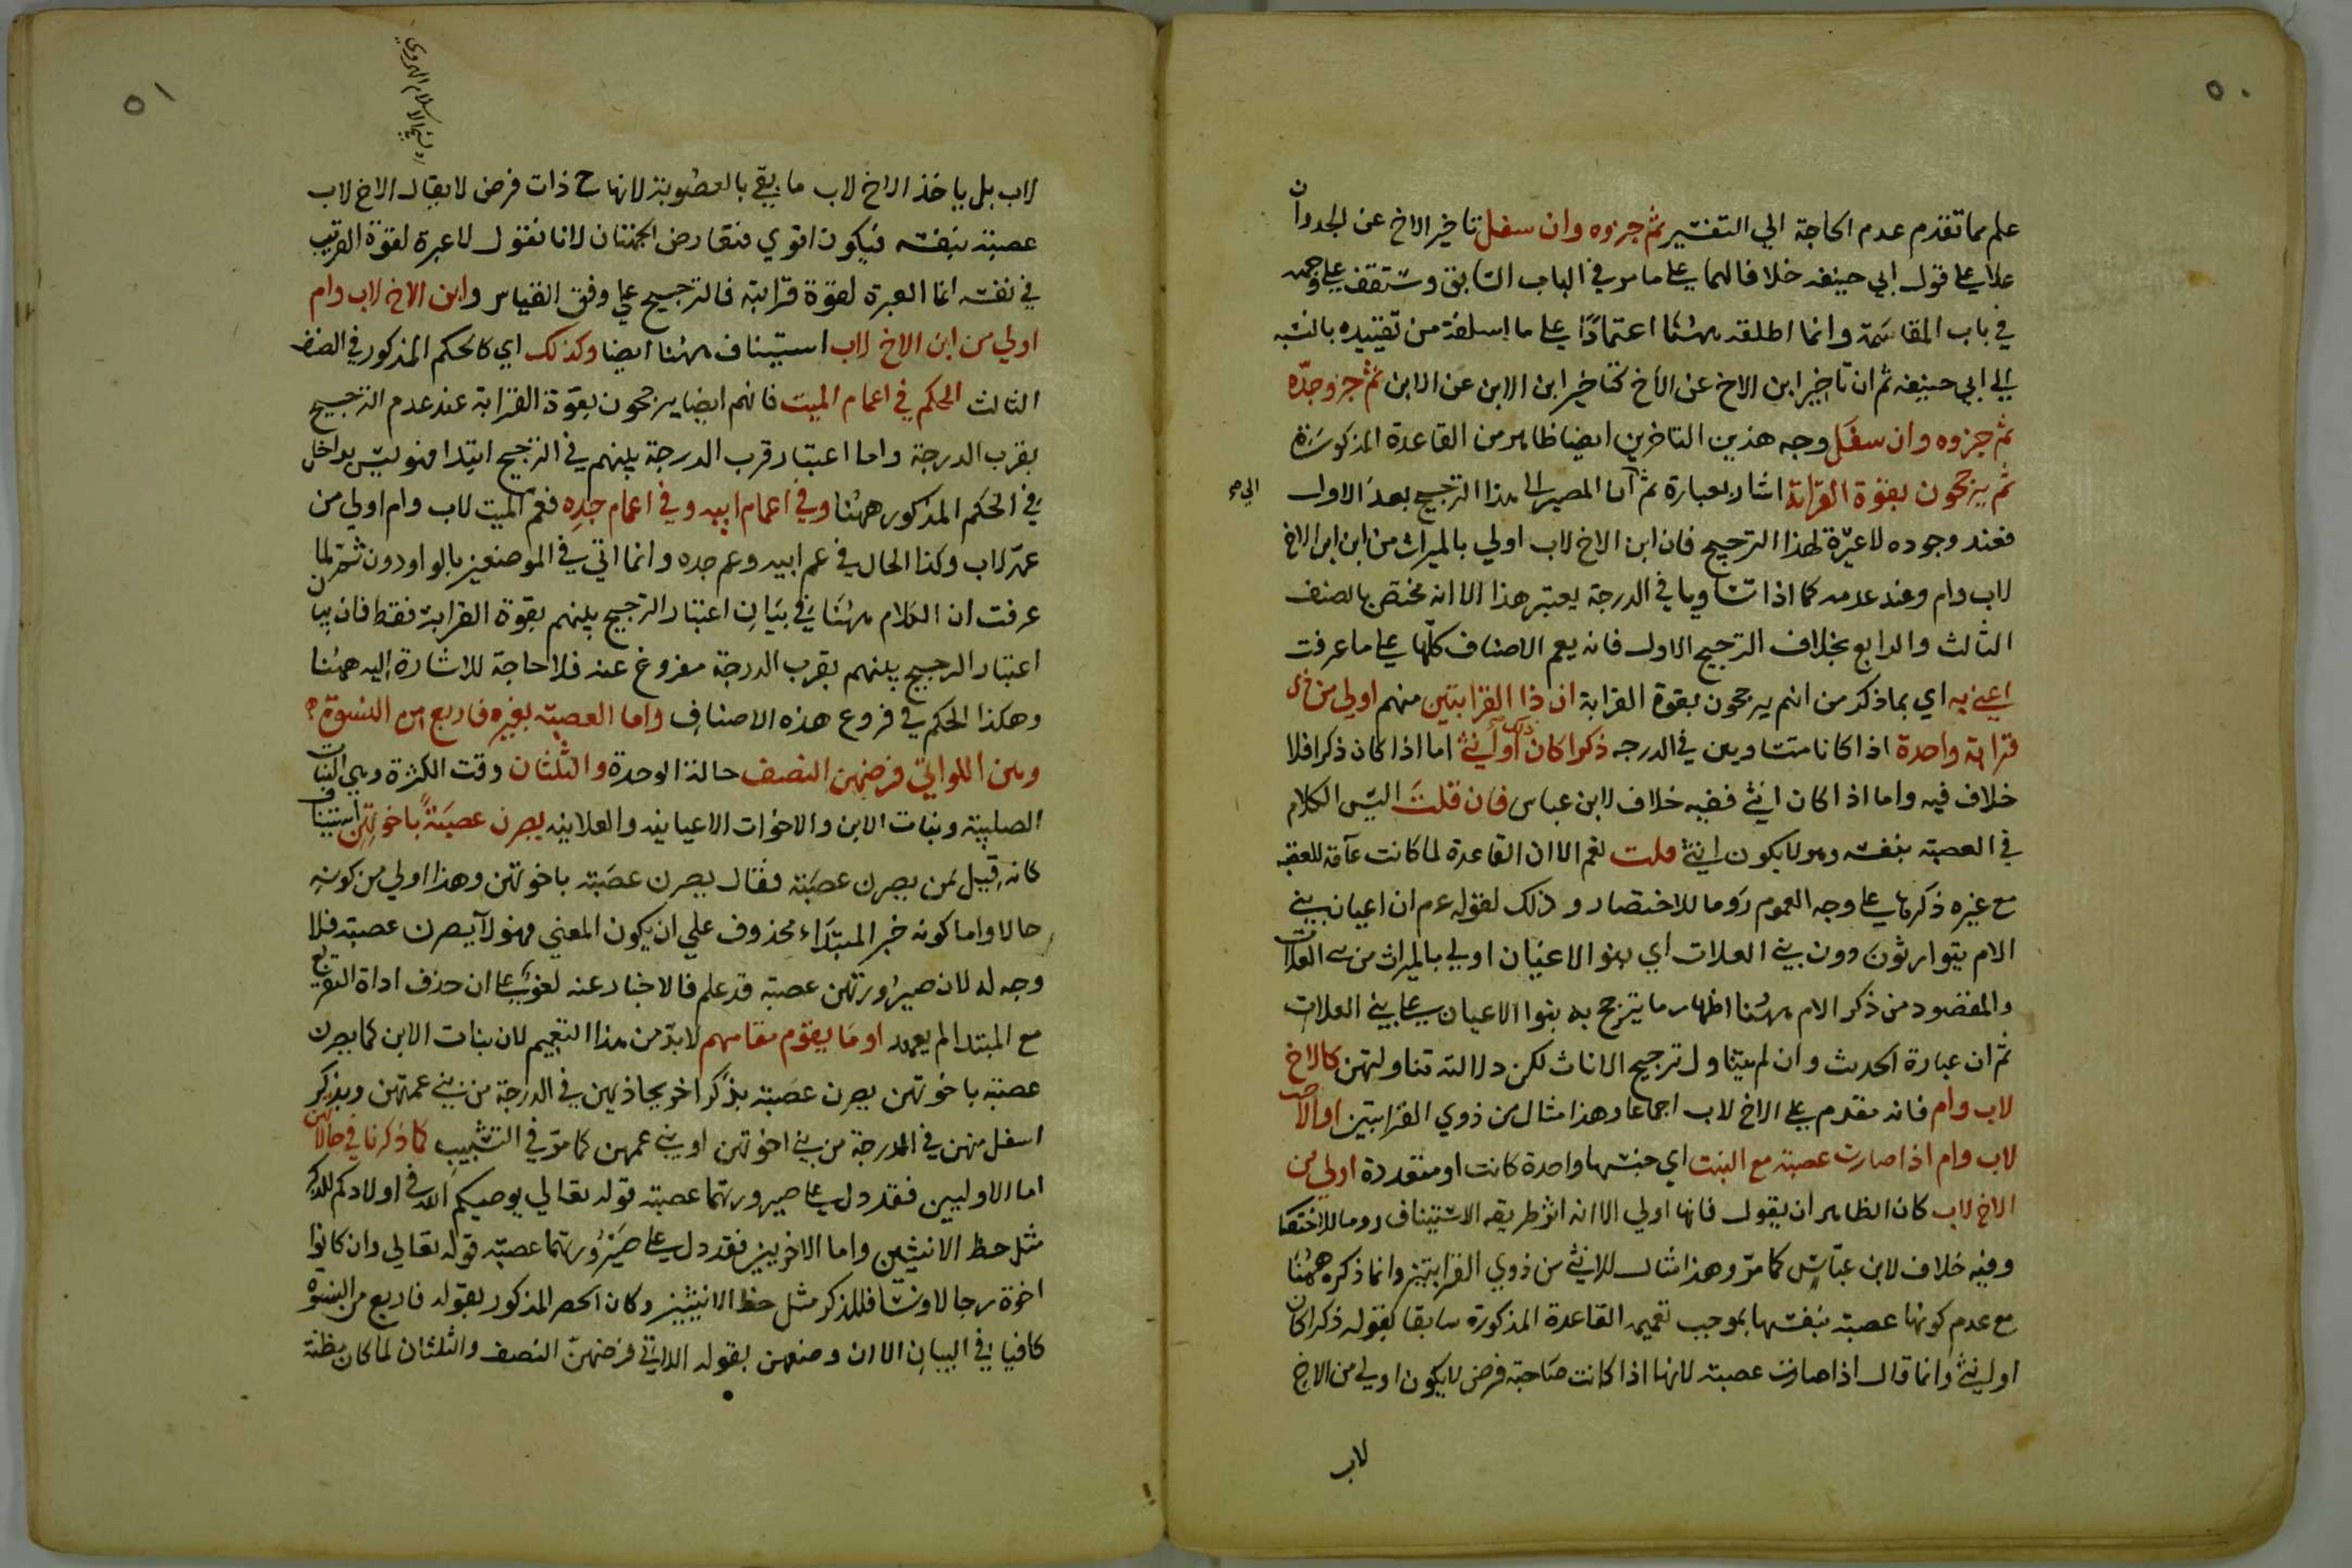 ٥٠
علم مما تقدم عدم الحاجة الي التفسير ثم جزوه وان سفل تاخير الاخ عن الجد وان
علا علي قول ابي حنيفه خلافا لهما علي ما مر في الباب السابق وستقف علي وجهه
في باب المقاسمة وانما اطلقه ههنا اعتمادًا علي ما اسلفته من تقييده بالنسبه
الي ابي حنيفه ثم ان تاخير ابن الاخ عن الأخ كتاخير ابن الابن عن الابن ثم جزو جدّه
ثم جزوه وان سفل وجه هذين التاخرين ايضا ظاهر من القاعدة المذكورة
ثم يرجحون بقوة القرابة اشار بعبارة ثم ان المصير الي هذا الترجيح بعد الاول
فعند وجوده لا عبرة لهذا الترجيح فان ابن الاخ لاب اولي بالميراث من ابن ابن الاخ
لاب وام وعند عدمه كما اذا تساويا في الدرجة يعتبر هذا الا انه مختص بالصنف
الثالث والرابع بخلاف الترجيح الاول فانه يعم الاصناف كلّها علي ما عرفت
اعني به اي بما ذكر من انهم يرجحون بقوة القرابة ان ذا القرابتين منهم اولي من ذي
قرابة واحدة اذا كانا متساويين في الدرجه ذكرا كان او انثي اما اذا كان ذكرا فلا
خلاف فيه واما اذا كان انثي ففيه خلاف لابن عباس فان قلت اليس الكلام
في العصبة بنفسه وهو لا يكون انثي قلت نعم الا ان القاعدة لما كانت عامة للعصبه
مع غيره ذكرها علي وجه العموم روما للاختصار وذلك لقوله عم ان اعيان بني
الام يتوارثون دون بني العلات اي بنو الاعيان اولي بالميراث من بني العلات
والمقصود من ذكر الام ههنا اظهار ما يترجح به بنوا الاعيان علي بني العلات
ثم ان عبارة الحديث وان لم يتناول ترجيح الاناث لكن دلالته تتناولهن كالاخ
لاب وام فانه مقدم علي الاخ لاب اجماعا وهذا مثال من ذوي القرابتين او الاخت
لاب وام اذا صارت عصبة مع البنت اي جنسها واحدة كانت او متعددة اولي من
الاخ لاب كان الظاهر ان يقول فانها اولي الا انه اثر طريقه الاستيناف روما للاختصا
وفيه خلاف لابن عبّاس كما مرّ وهذا مثال للانثي من ذوي القرابتين وانما ذكره ههنا
مع عدم كونها عصبة بنفسها بموجب تعميم القاعدة المذكورة سابقا بقوله ذكرا كان
او انثي وانما قال اذا صارت عصبة لانها اذا كانت صاحبة فرض لا يكون اولي من الاخ
لاب
٥١
لاب بل ياخذ الاخ لاب ما بقي بالعصوبة لانها ح ذات فرض لا يقال الاخ لاب
عصبة بنفسه فيكون اقوي فتعارض الجهتان لانا نقول لا عبرة لقوة القريب
في نفسه انما العبرة لقوة قرابته فالترجيح علي وفق القياس وابن الاخ لاب وام
اولي من ابن الاخ لاب استيناف ههنا ايضا وكذلك اي كالحكم المذكور في الصنف
الثالث الحكم في اعمام الميت فانهم ايضا يرجحون بقوة القرابة عند عدم الترجيح
بقرب الدرجة واما اعتبار قرب الدرجة بينهم في الترجيح ابتدا فهو ليس بداخل
في الحكم المذكور ههنا وفي اعمام ابيه وفي اعمام جدِه فعم الميت لاب وام اولي من
عمّ لاب وكذا الحال في عم ابيه وعم جده وانما اتي في الموضعين بالواو دون ثم لما
عرفت ان الكلام ههنا في بيان اعتبار الترجيح بينهم بقوة القرابة فقط فان بيان
اعتبار الترجيح بينهم بقرب الدرجة مفروغ عنه فلا حاجة للاشارة اليه ههنا
وهكذا الحكم في فروع هذه الاصناف واما العصبه بغيره فاربع من النسوة
وهن اللواتي فرضهن النصف حالة الوحدة والثلثان وقت الكثرة وهي البنات
الصلبية وبنات الابن والاخوات الاعيانيه والعلاتيه يصرن عصبةً باخوتهن استيناف
كانه قيل لمن يصرن عصبة فقال يصرن عصبة باخوتهن وهذا اولي من كونه
حالا واما كونه خبر المبتداء محذوف علي ان يكون المعني فهولاَ يصرن عصبة فلا
وجه له لان صيرورتهن عصبة قد علم فالاخبار عنه لغو علي ان حذف اداة التفريع
مع المبتدا لم يعهد او ما يقوم مقامهم لابدّ من هذا التعميم لان بنات الابن كما يصرن
عصبة باخوتهن يصرن عصبة بذكر اخر يحاذيهن في الدرجة من بني عمتهن وبذكر
اسفل منهن في الدرجة من بني اخوتهن او بني عمهن كما مرّ في التشبيب كما ذكرنا في حالاتهن
اما الاوليين فقد دل علي صيرورتهما عصبة قوله تعالي يوصيكم الله في اولادكم للذكر
مثل حظ الانثيين واما الاخريين فقد دل علي صيرورتهما عصبة قوله تعالي وان كانوا
اخوة رجالا ونسا فللذكر مثل حظ الانثيين وكان الحصر المذكور بقوله فاربع من النسوة
كافيا في البيان الا ان وصفهن بقوله اللاتي فرضهنّ النصف والثلثان لما كان مظنة